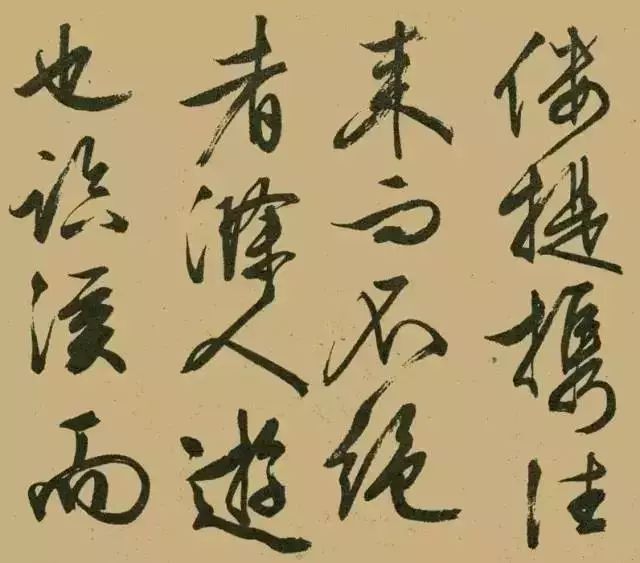 僂提攜往
来而不絶
者滁人遊
也臨溪而